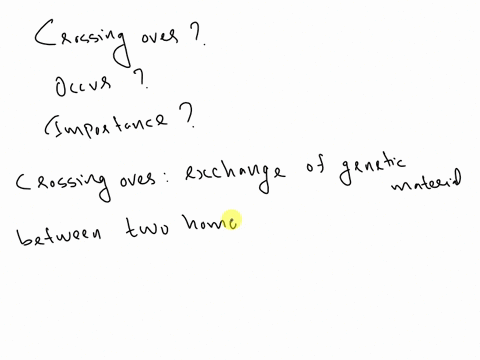 Crossing over ?
Occur ?
Importance ?
Crossing over : exchange of genetic material
between two homo